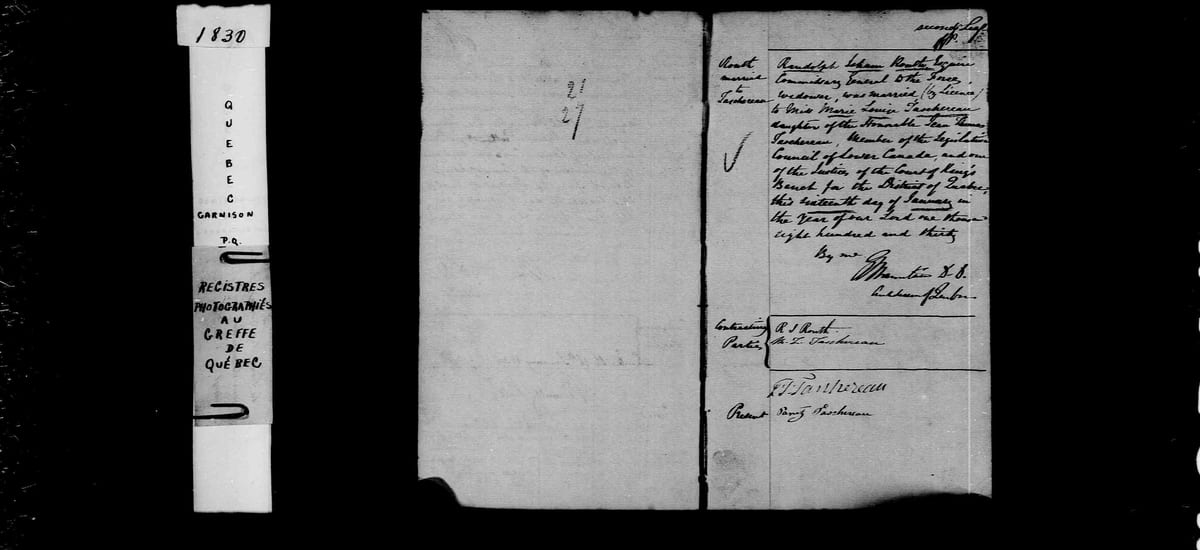 1830
QUEBEC
GARNISON
P.Q.
REGISTRES
PHOTOGRAPHIÉS
AU
GREFFE
DE
QUÉBEC
21
27
second Leaf
Routh
married
to
Taschereau
Randolph Isham Routh Esquire
Commissary General to the Forces,
widower, was married (by Licence)
to Miss Marie Louise Taschereau
daughter of the Honorable Jean Thomas
Taschereau, Member of the Legislative
Council of Lower Canada, and one
of the Justices of the Court of King's
Bench for the District of Quebec,
this sixteenth day of January in
the year of our Lord one thousand
eight hundred and thirty
By me
G Mountain D.D.
Archdeacon of Quebec
Contracting
Parties
R I Routh
M. L. Taschereau
J T Taschereau
Present
Taschereau